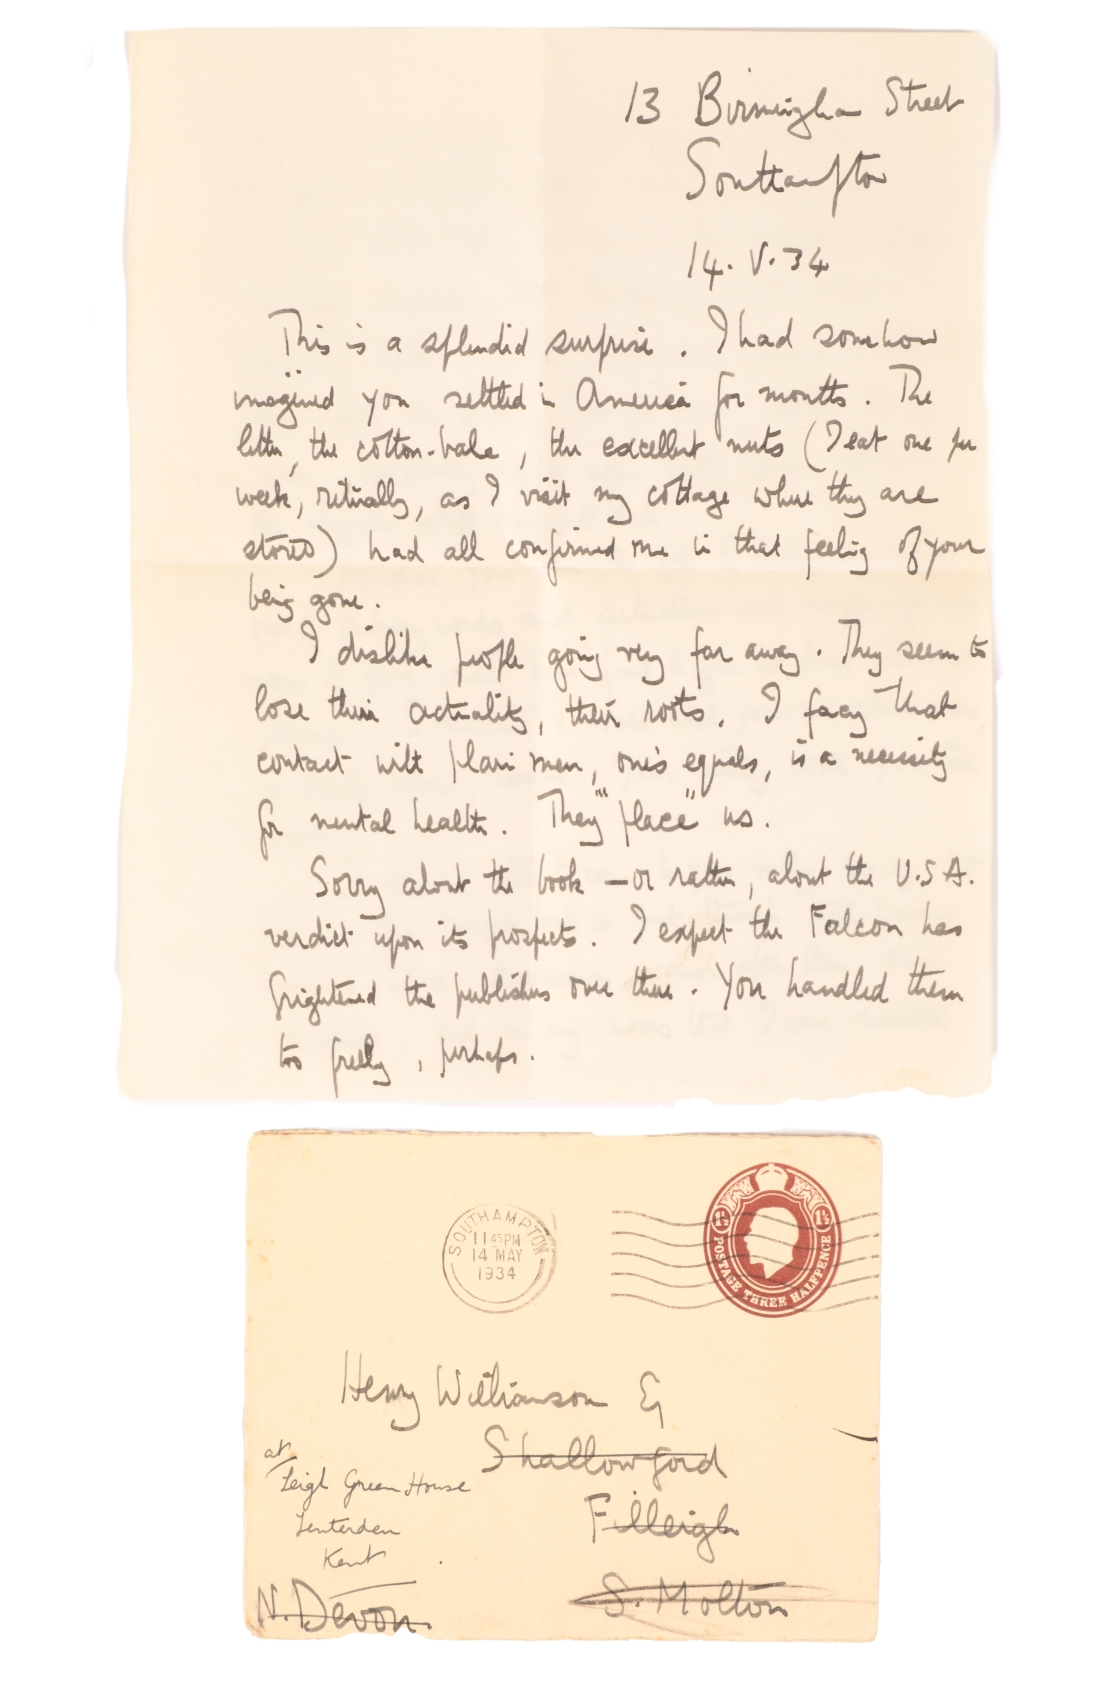 13 Birmingham Street
Southampton
14. V. 34
This is a splendid surprise. I had somehow
imagined you settled in America for months. The
letter, the cotton-bale, the excellent nuts (I eat one per
week, ritually, as I visit my cottage where they are
stored) had all confirmed me in that feeling of your
being gone.
I dislike people going very far away. They seem to
lose their actuality, their roots. I fancy that
contact with plain men, one's equals, is a necessity
for mental health. They "place" us.
Sorry about the book — or rather, about the U.S.A.
verdict upon its prospects. I expect the Falcon has
frightened the publishers over there. You handled them
too freely, perhaps.
SOUTHAMPTON
11 45 PM
14 MAY
1934
POSTAGE THREE HALFPENCE
Henry Williamson Esq
Shallowford
Filleigh
S. Molton
N. Devon.
at
Leigh Green House
Tenterden
Kent